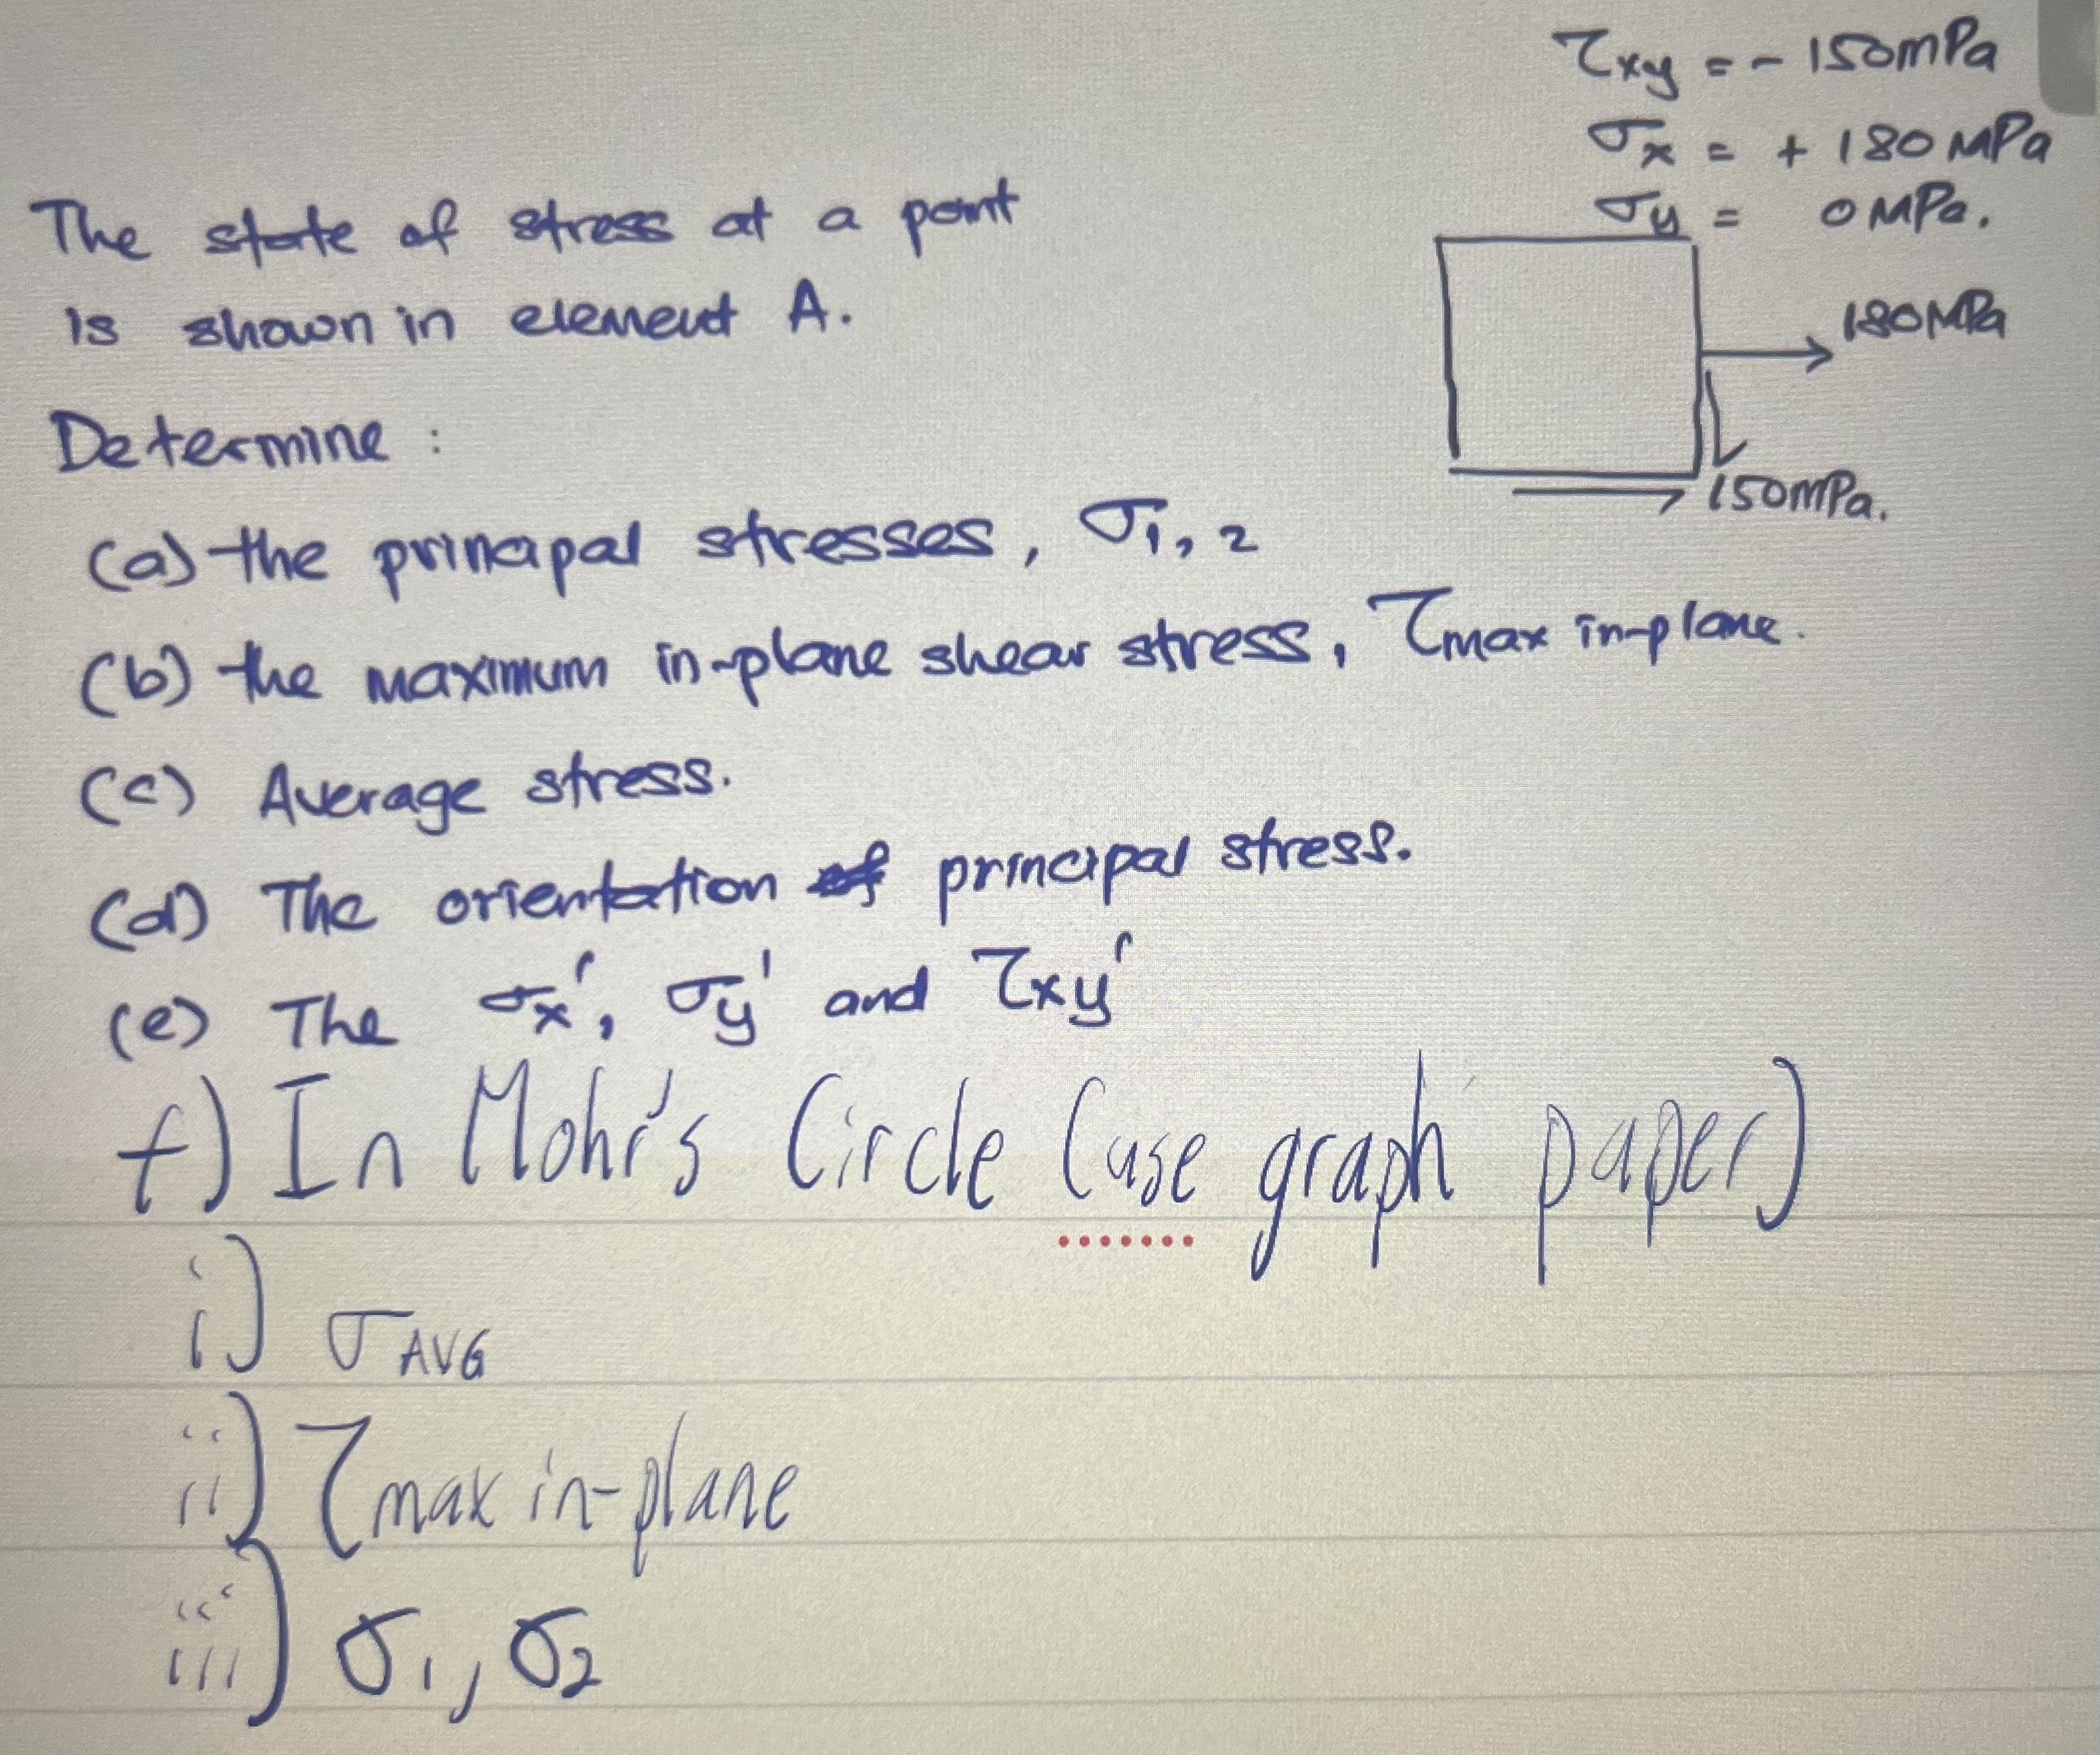 τxy = - 150mPa
σx = + 180 MPa
σy = 0 MPa.
The state of stress at a point
is shown in element A.
180MPa
150mPa.
Determine :
(a) the principal stresses, σ1, 2
(b) the maximum in-plane shear stress, τmax in-plane.
(c) Average stress.
(d) The orientation of principal stress.
(e) The σx', σy' and τxy'
f) In Mohr's Circle (use graph paper)
i) σAVG
ii) τmax in-plane
iii) σ1, σ2